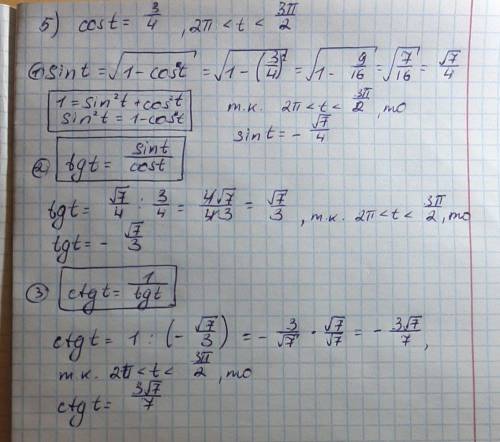 5) cos t = 3/4 , 2π < t < 3π/2
① sin t = √(1 - cos²t) = √(1 - (3/4)²) = √(1 - 9/16) = √(7/16) = √7/4
1 = sin²t + cos²t
sin²t = 1 - cos²t
т.к. 2π < t < 3π/2, то
sin t = - √7/4
② tg t = sin t/cos t
tg t = √7/4 : 3/4 = 4√7/4·3 = √7/3 , т.к. 2π < t < 3π/2, то
tg t = - √7/3
③ ctg t = 1/tg t
ctg t = 1 : (- √7/3) = - 3/√7 · √7/√7 = - 3√7/7 ,
т.к. 2π < t < 3π/2, то
ctg t = 3√7/7